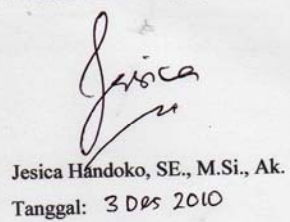 Jesica
Jesica Handoko, SE., M.Si., Ak.
Tanggal: 3 Des 2010